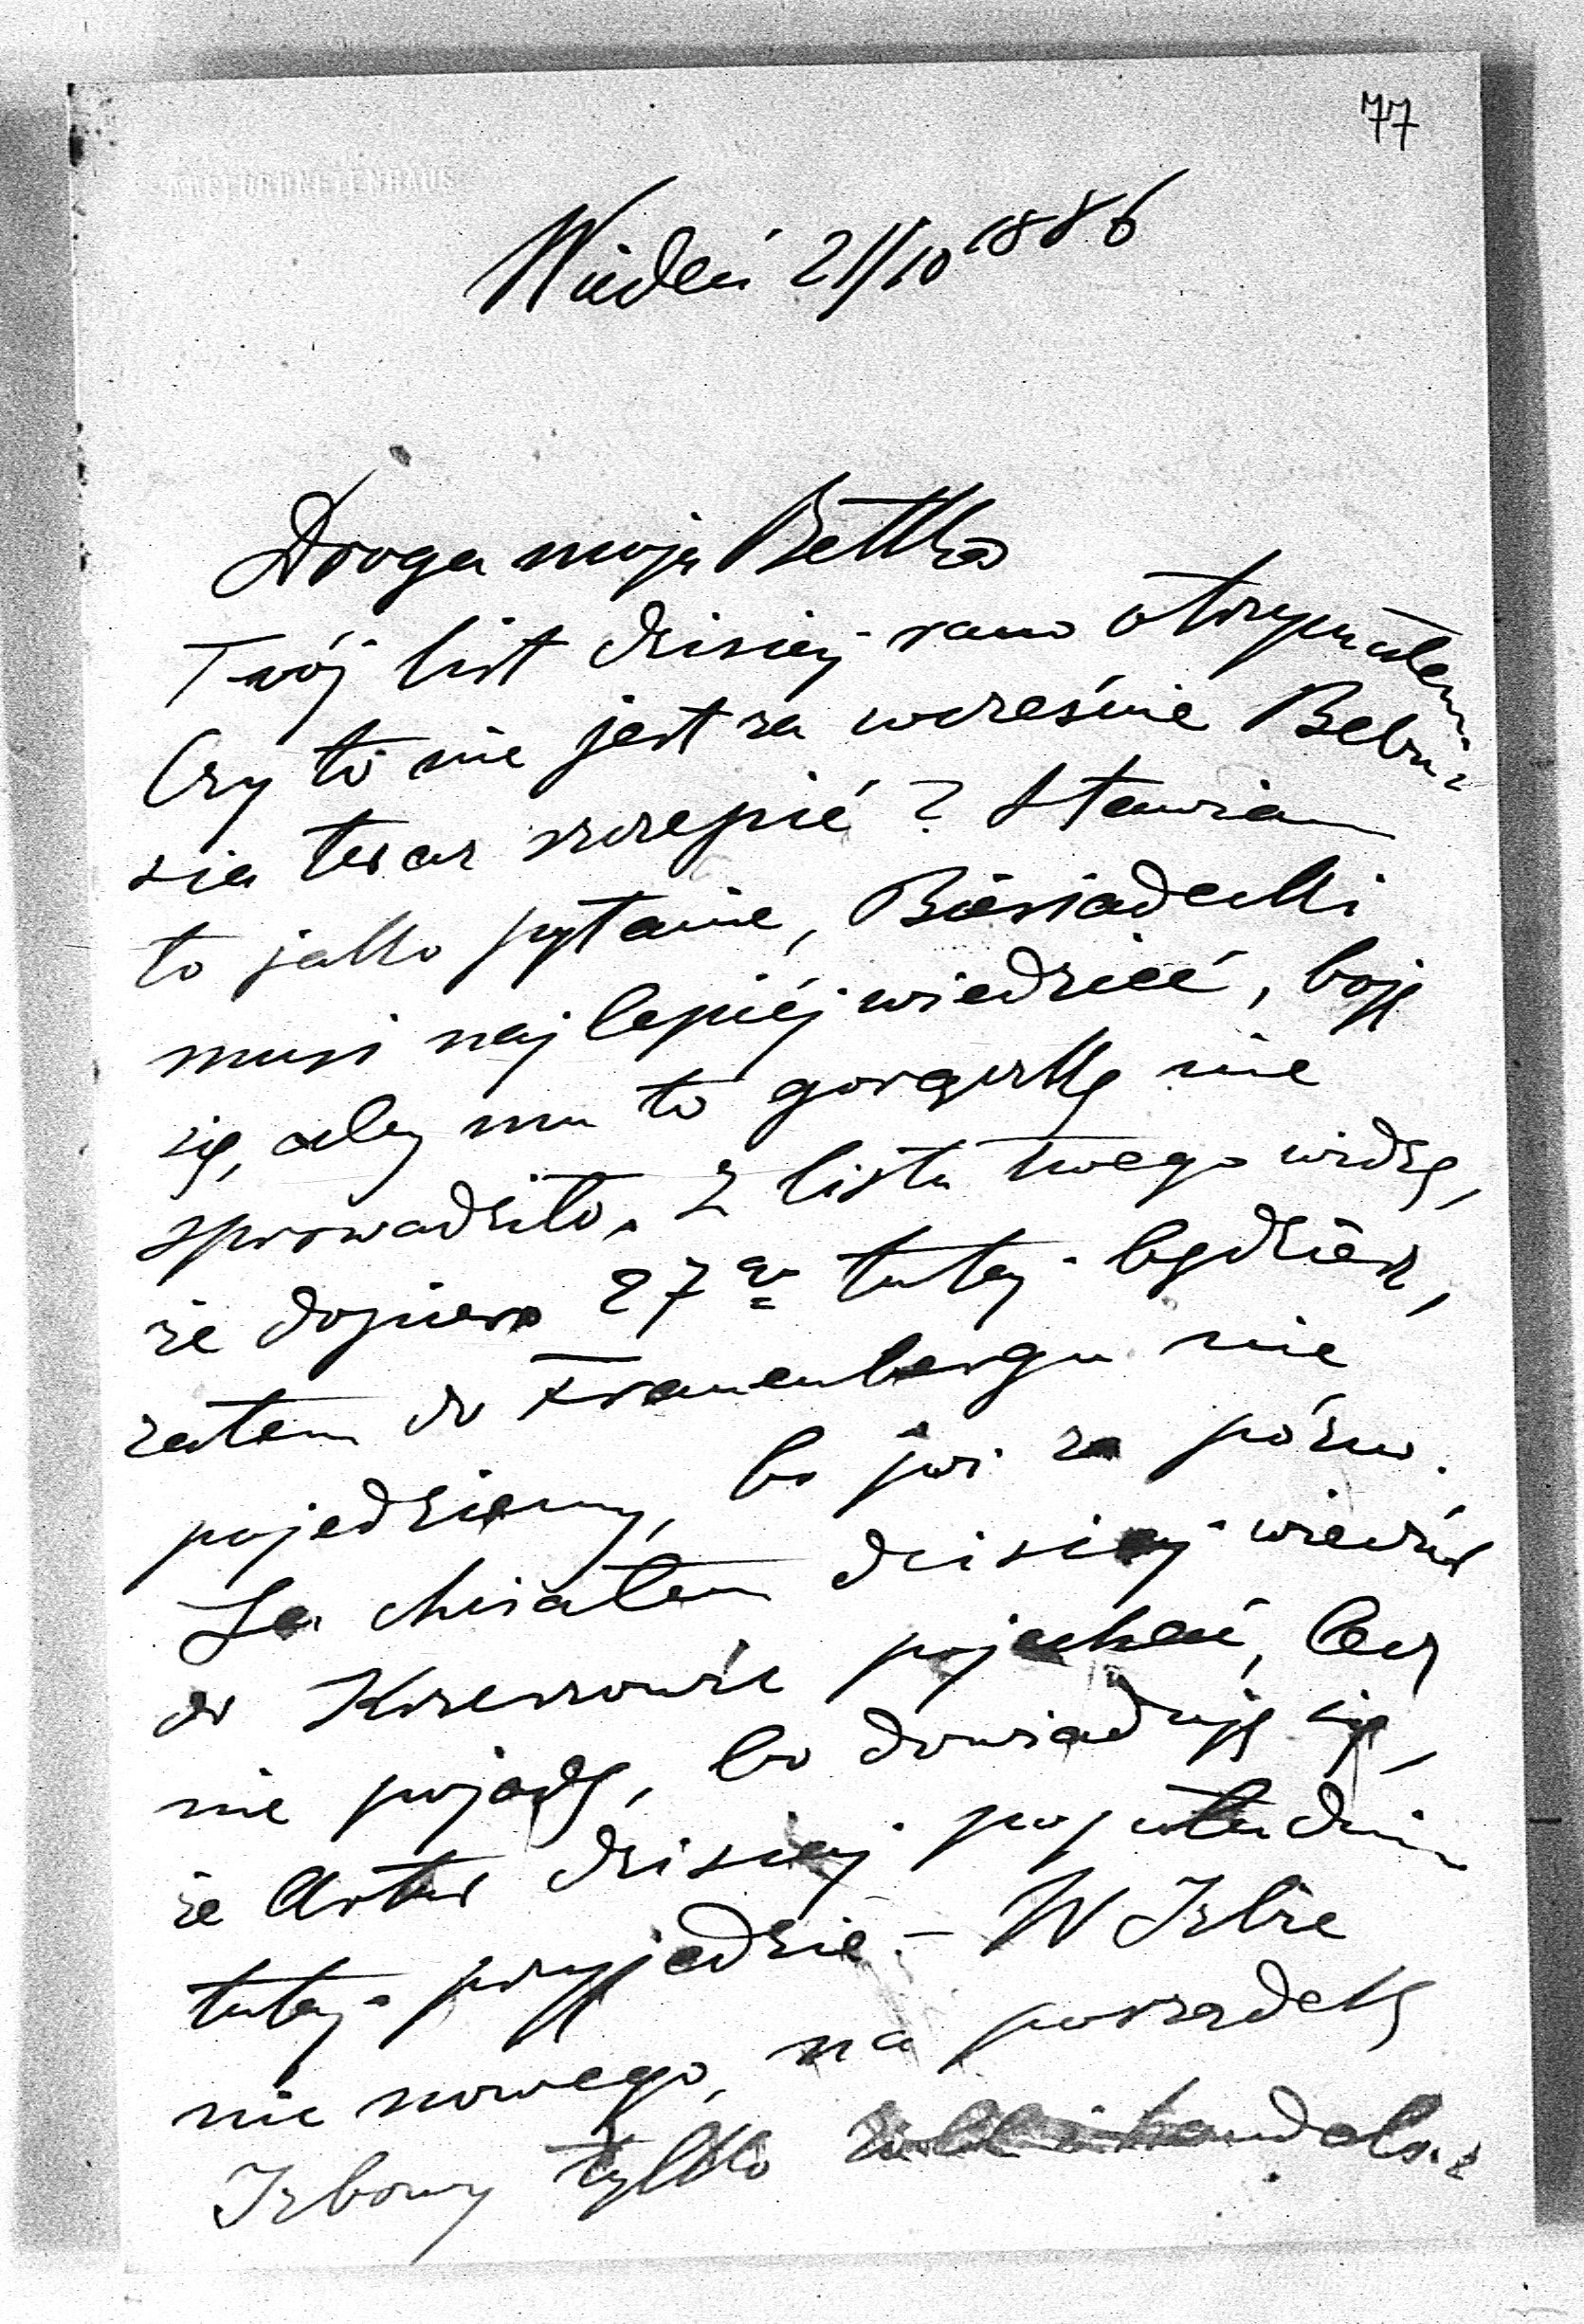 77
ABGEORDNETENHAUS
Wiedeń 21/10 1886
Droga moja Bettka
Twój list dzisiaj rano otrzymałem.
Czy to nie jest za wcześnie Bebu-
sia teraz szczepić? Stawiam
to jako pytanie, Biesiadecki
musi najlepiéj wiedzieć, boję
się, aby mu to gorączkę nie
sprowadziło. Z listu twego widzę,
że dopiero 27go tutaj będziesz,
zatem do Frauenbergu nie
pojedziemy, bo już za późno.
Ja chciałem dzisiaj wieczór
do Krzeszowic pojechać, lecz
nie pojadę, bo dowiaduję się,
że Artur dzisiaj popołudniu
tutaj przyjedzie – W Izbie
nic nowego, na porządek
Izbowy tylko